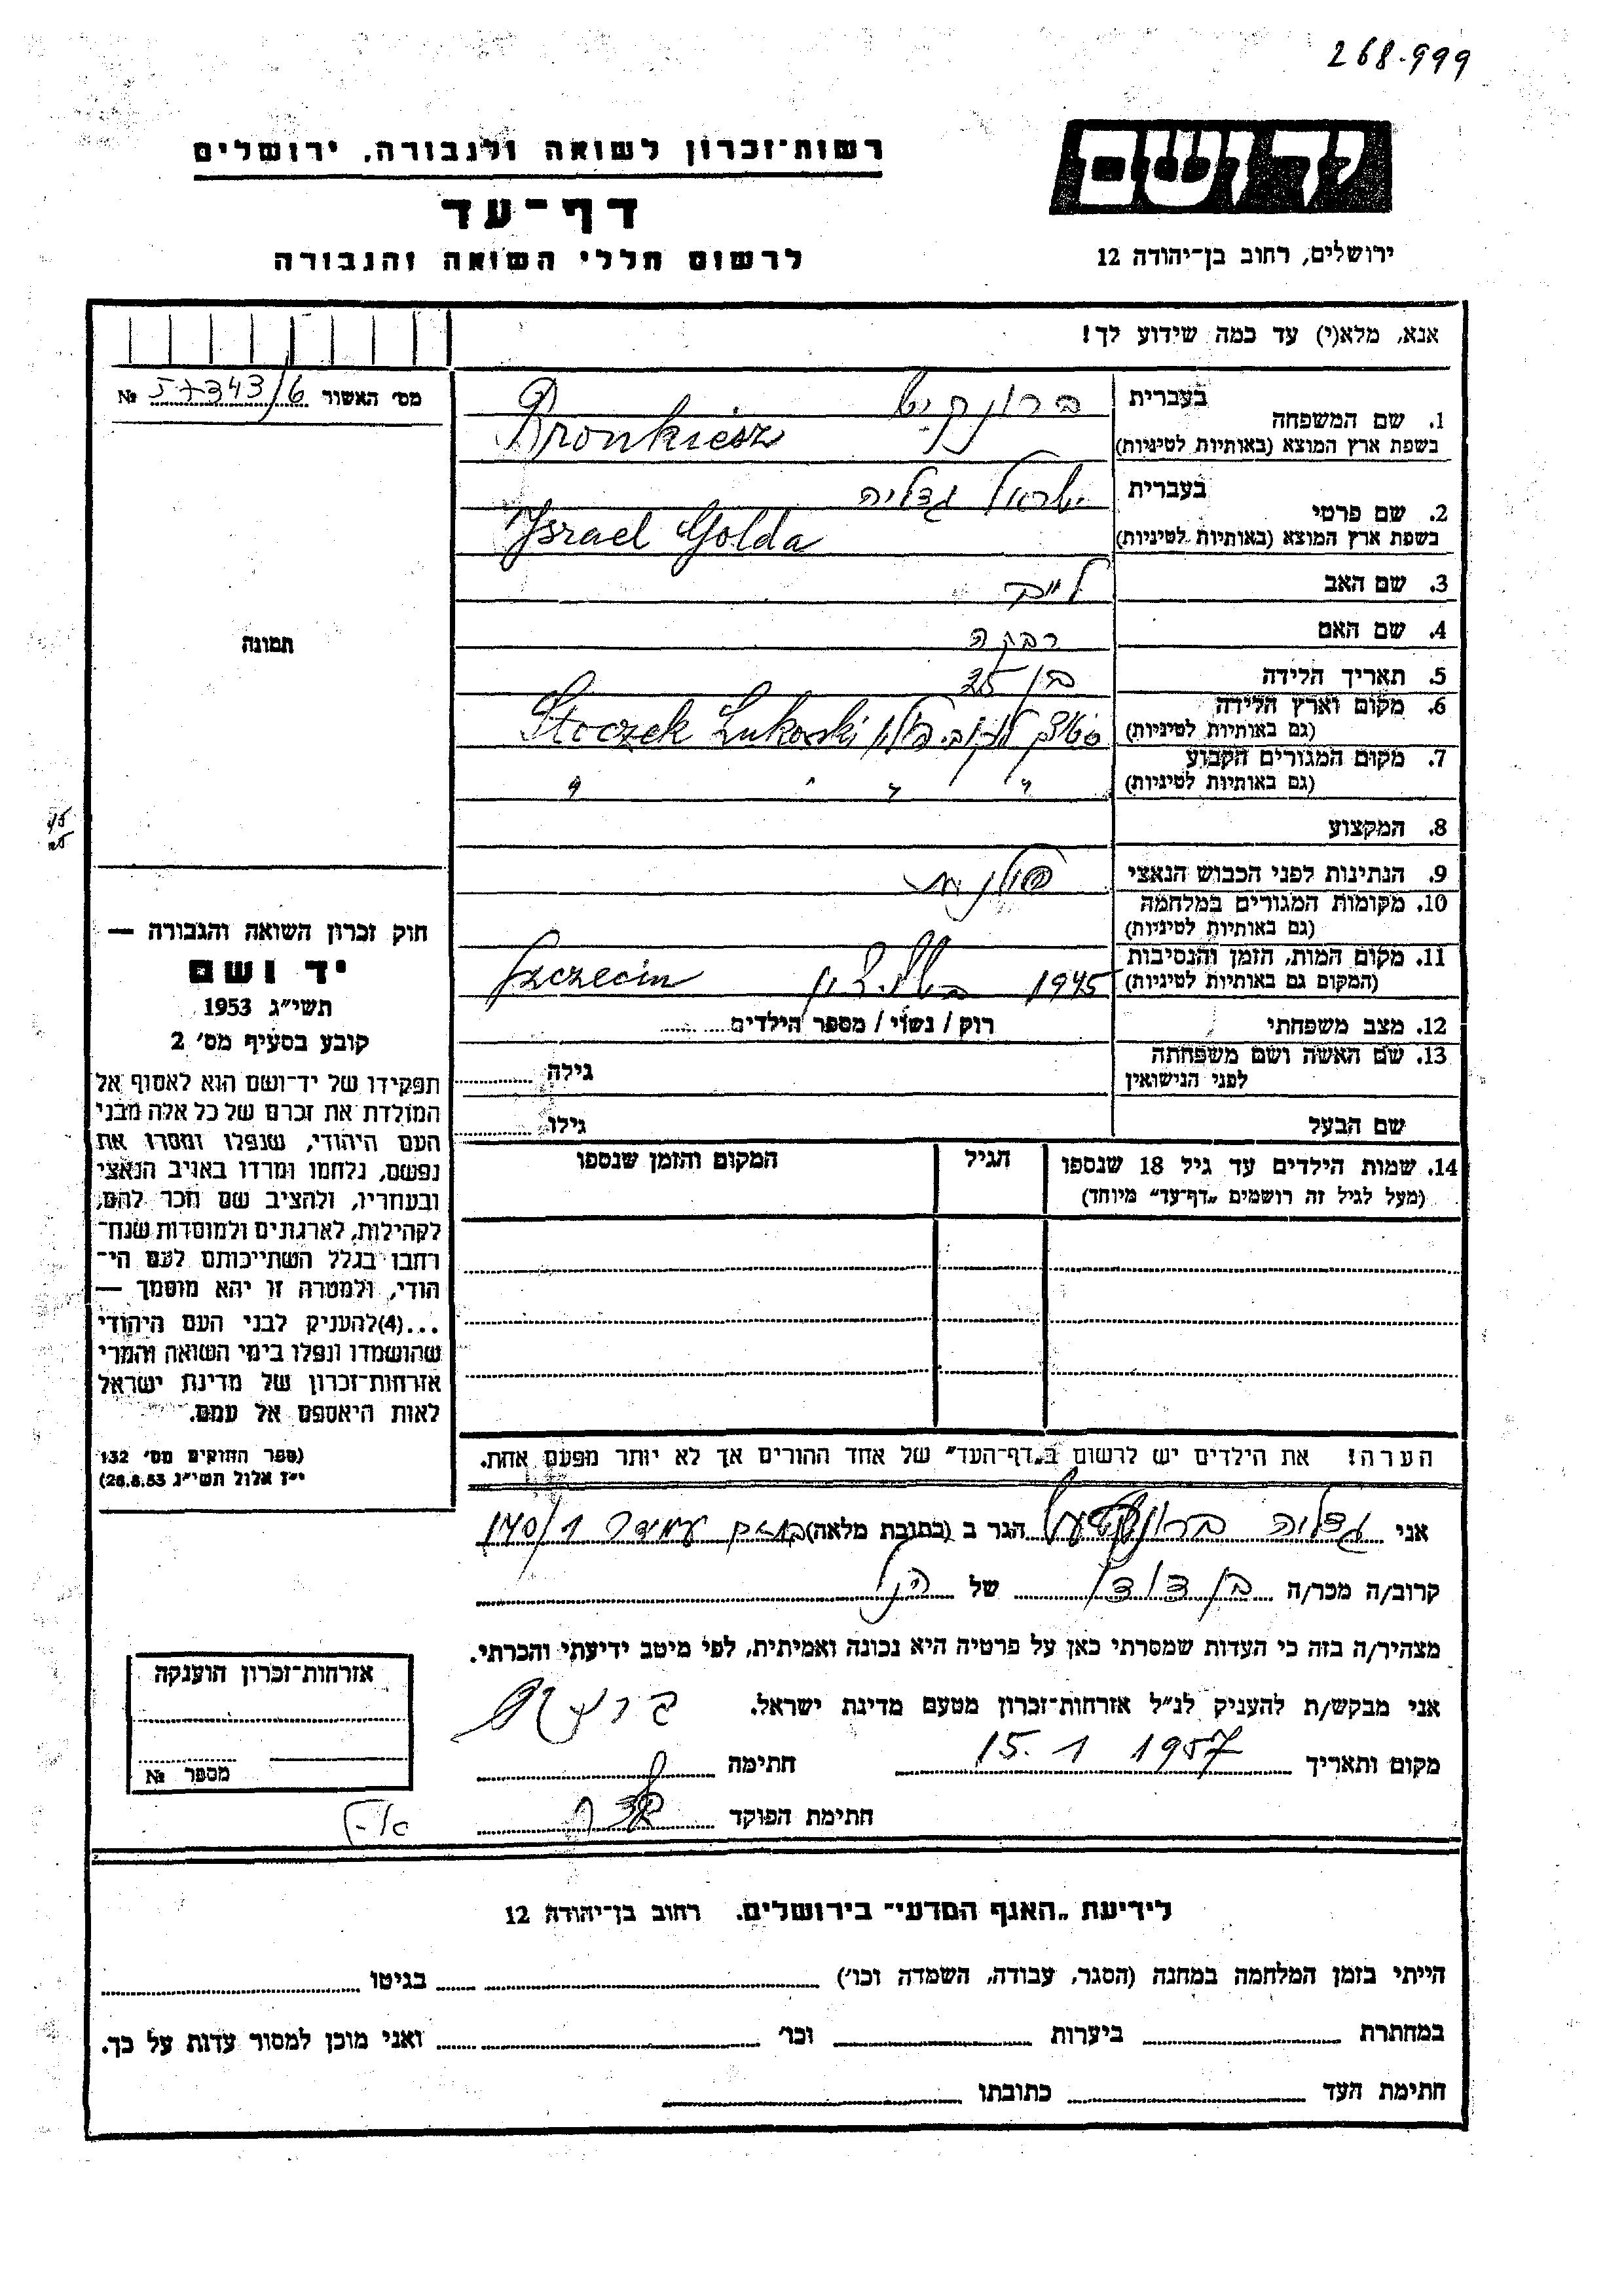 268-999
יד ושם
ירושלים, רחוב בן־יהודה 12
רשות־זכרון לשואה ולגבורה, ירושלים
דף־עד
לרשום חללי השואה והגבורה
אנא, מלא(י) עד כמה שידוע לך!
מס׳ האשור 57343/6 №
1. שם המשפחה
בעברית
בשפת ארץ המוצא (באותיות לטיניות) Bronkiesz
2. שם פרטי
בעברית ישראל גדליה
בשפת ארץ המוצא (באותיות לטיניות) Israel Golda
3. שם האב לייב
4. שם האם רבקה
5. תאריך הלידה בן 25
6. מקום וארץ הלידה
(גם באותיות לטיניות) פולין Stoczek Lukowski
7. מקום המגורים הקבוע
(גם באותיות לטיניות) " " " "
8. המקצוע
9. הנתינות לפני הכבוש הנאצי פולנית
10. מקומות המגורים במלחמה
(גם באותיות לטיניות)
11. מקום המות, הזמן והנסיבות
(המקום גם באותיות לטיניות) 1945 Szczecin
12. מצב משפחתי רוק / נשוי / מספר הילדים
13. שם האשה ושם משפחתה
לפני הנישואין גילה
שם הבעל גילו
14. שמות הילדים עד גיל 18 שנספו
(מעל לגיל זה רושמים „דף־עד״ מיוחד)
הגיל
המקום והזמן שנספו
הערה! את הילדים יש לרשום ב„דף־העד״ של אחד ההורים אך לא יותר מפעם אחת.
תמונה
חוק זכרון השואה והגבורה —
יד ושם
תשי״ג 1953
קובע בסעיף מס׳ 2
תפקידו של יד־ושם הוא לאסוף אל
המולדת את זכרם של כל אלה מבני
העם היהודי, שנפלו ומסרו את
נפשם, נלחמו ומרדו באויב הנאצי
ובעוזריו, ולהציב שם וזכר להם,
לקהילות, לארגונים ולמוסדות שנח־
רבו בגלל השתייכותם לעם הי־
הודי, ולמטרה זו יהא מוסמך —
...(4)להעניק לבני העם היהודי
שהושמדו ונפלו בימי השואה והמרי
אזרחות־זכרון של מדינת ישראל
לאות היאספם אל עמם.
(ספר החוקים מס׳ 132
י״ז אלול תשי״ג 28.8.53)
אני גדליה הגר ב (כתובת מלאה) עמידר 170/1
קרוב/ה מכר/ה בן דודן של הנ״ל
מצהיר/ה בזה כי העדות שמסרתי כאן על פרטיה היא נכונה ואמיתית, לפי מיטב ידיעתי והכרתי.
אני מבקש/ת להעניק לנ״ל אזרחות־זכרון מטעם מדינת ישראל.
מקום ותאריך 15.1 1957 חתימה
חתימת הפוקד
אזרחות־זכרון הוענקה
מספר №
לידיעת „האגף המדעי״ בירושלים. רחוב בן־יהודה 12
הייתי בזמן המלחמה במחנה (הסגר, עבודה, השמדה וכו׳) בגיטו
במחתרת ביערות וכו׳ ואני מוכן למסור עדות על כך.
חתימת העד כתובתו